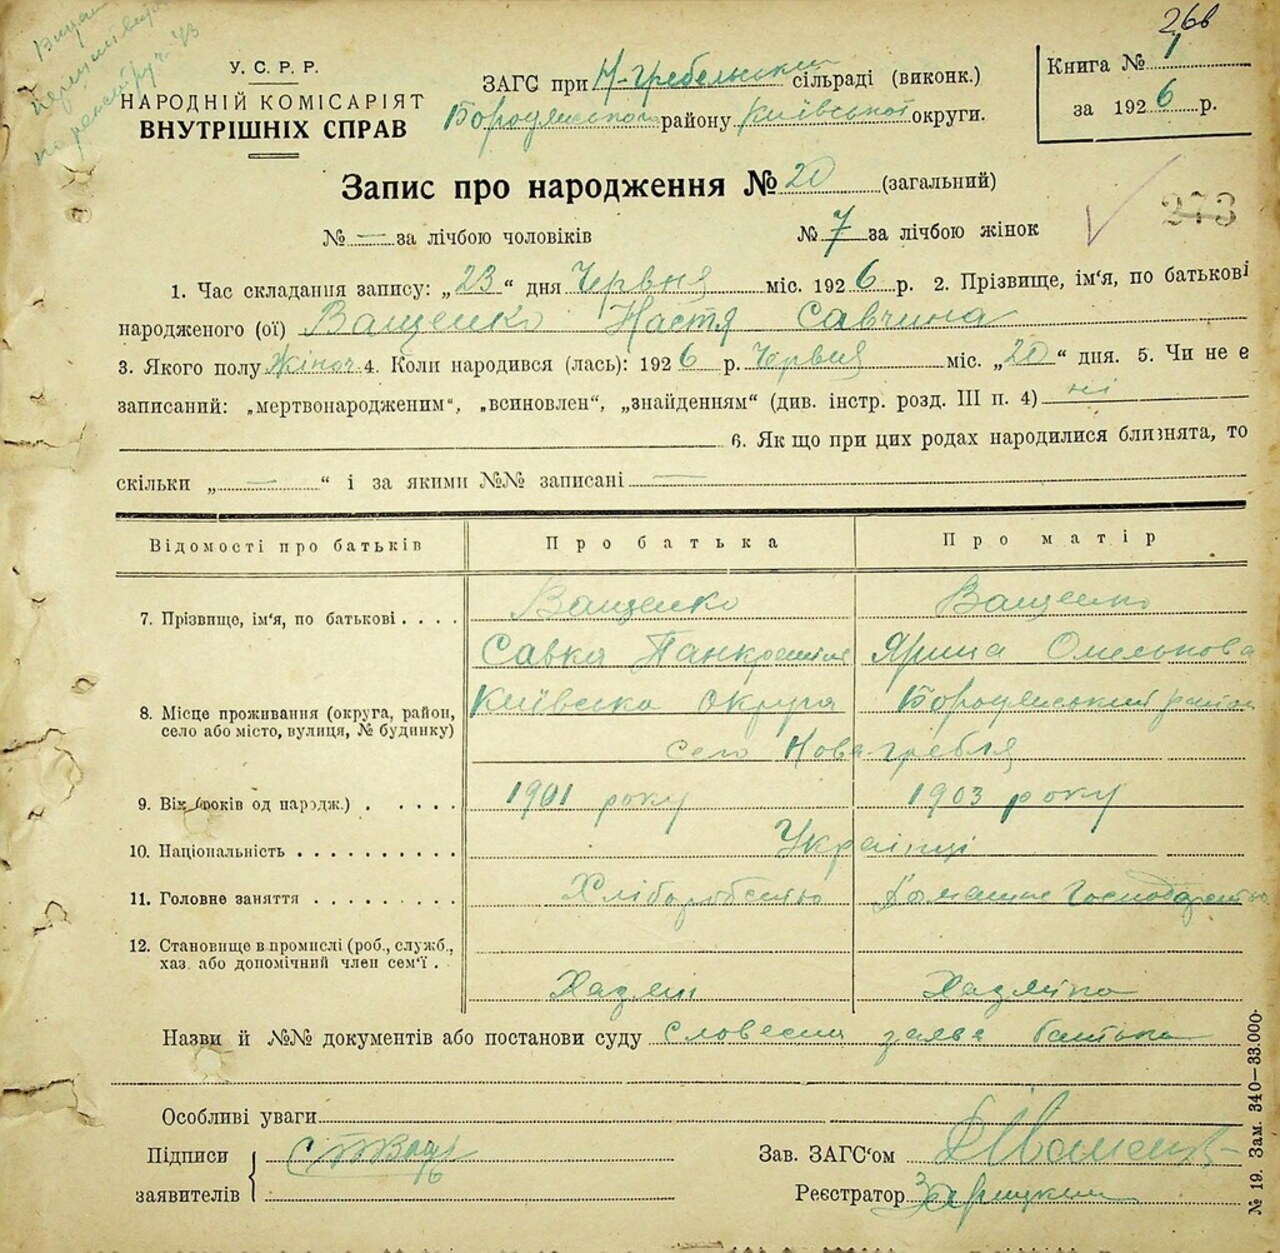 26в
У. С. Р. Р.
НАРОДНІЙ КОМІСАРІЯТ
ВНУТРІШНІХ СПРАВ
ЗАГС при Н-Гребельській сільраді (виконк.)
Бородянського району Київської округи.
Книга № 1
за 1926 р.
Запис про народження № 20 (загальний)
№ — за лічбою чоловіків № 7 за лічбою жінок
273
1. Час складання запису: „23“ дня Червня міс. 1926 р. 2. Прізвище, ім'я, по батькові
народженого (ої) Ващенко Настя Савчина
3. Якого полу Жіноч. 4. Коли народився (лась): 1926 р. Червня міс. „20“ дня. 5. Чи не є
записаний: „мертвонародженим“, „всиновлен“, „знайденням“ (див. інстр. розд. III п. 4) ні
6. Як що при цих родах народилися близнята, то
скільки „—“ і за якими №№ записані —
Відомості про батьків Про батька Про матір
7. Прізвище, ім'я, по батькові Ващенко Ващенко
Савка Ярина Омелькова
8. Місце проживання (округа, район, Київська Округа Бородянський район
село або місто, вулиця, № будинку) село Нова-гребля
9. Вік (років од народж.) 1901 року 1903 року
10. Національність Українці
11. Головне заняття Хліборобство Домашнє Господарство
12. Становище в промислі (роб., служб.,
хаз. або допомічний член сем'ї Хазяїн Хазяйка
Назви й №№ документів або постанови суду Словесна заява батька
Особливі уваги
Підписи
заявителів
Зав. ЗАГС'ом
Реєстратор
№ 19. Зам. 340—33.000.